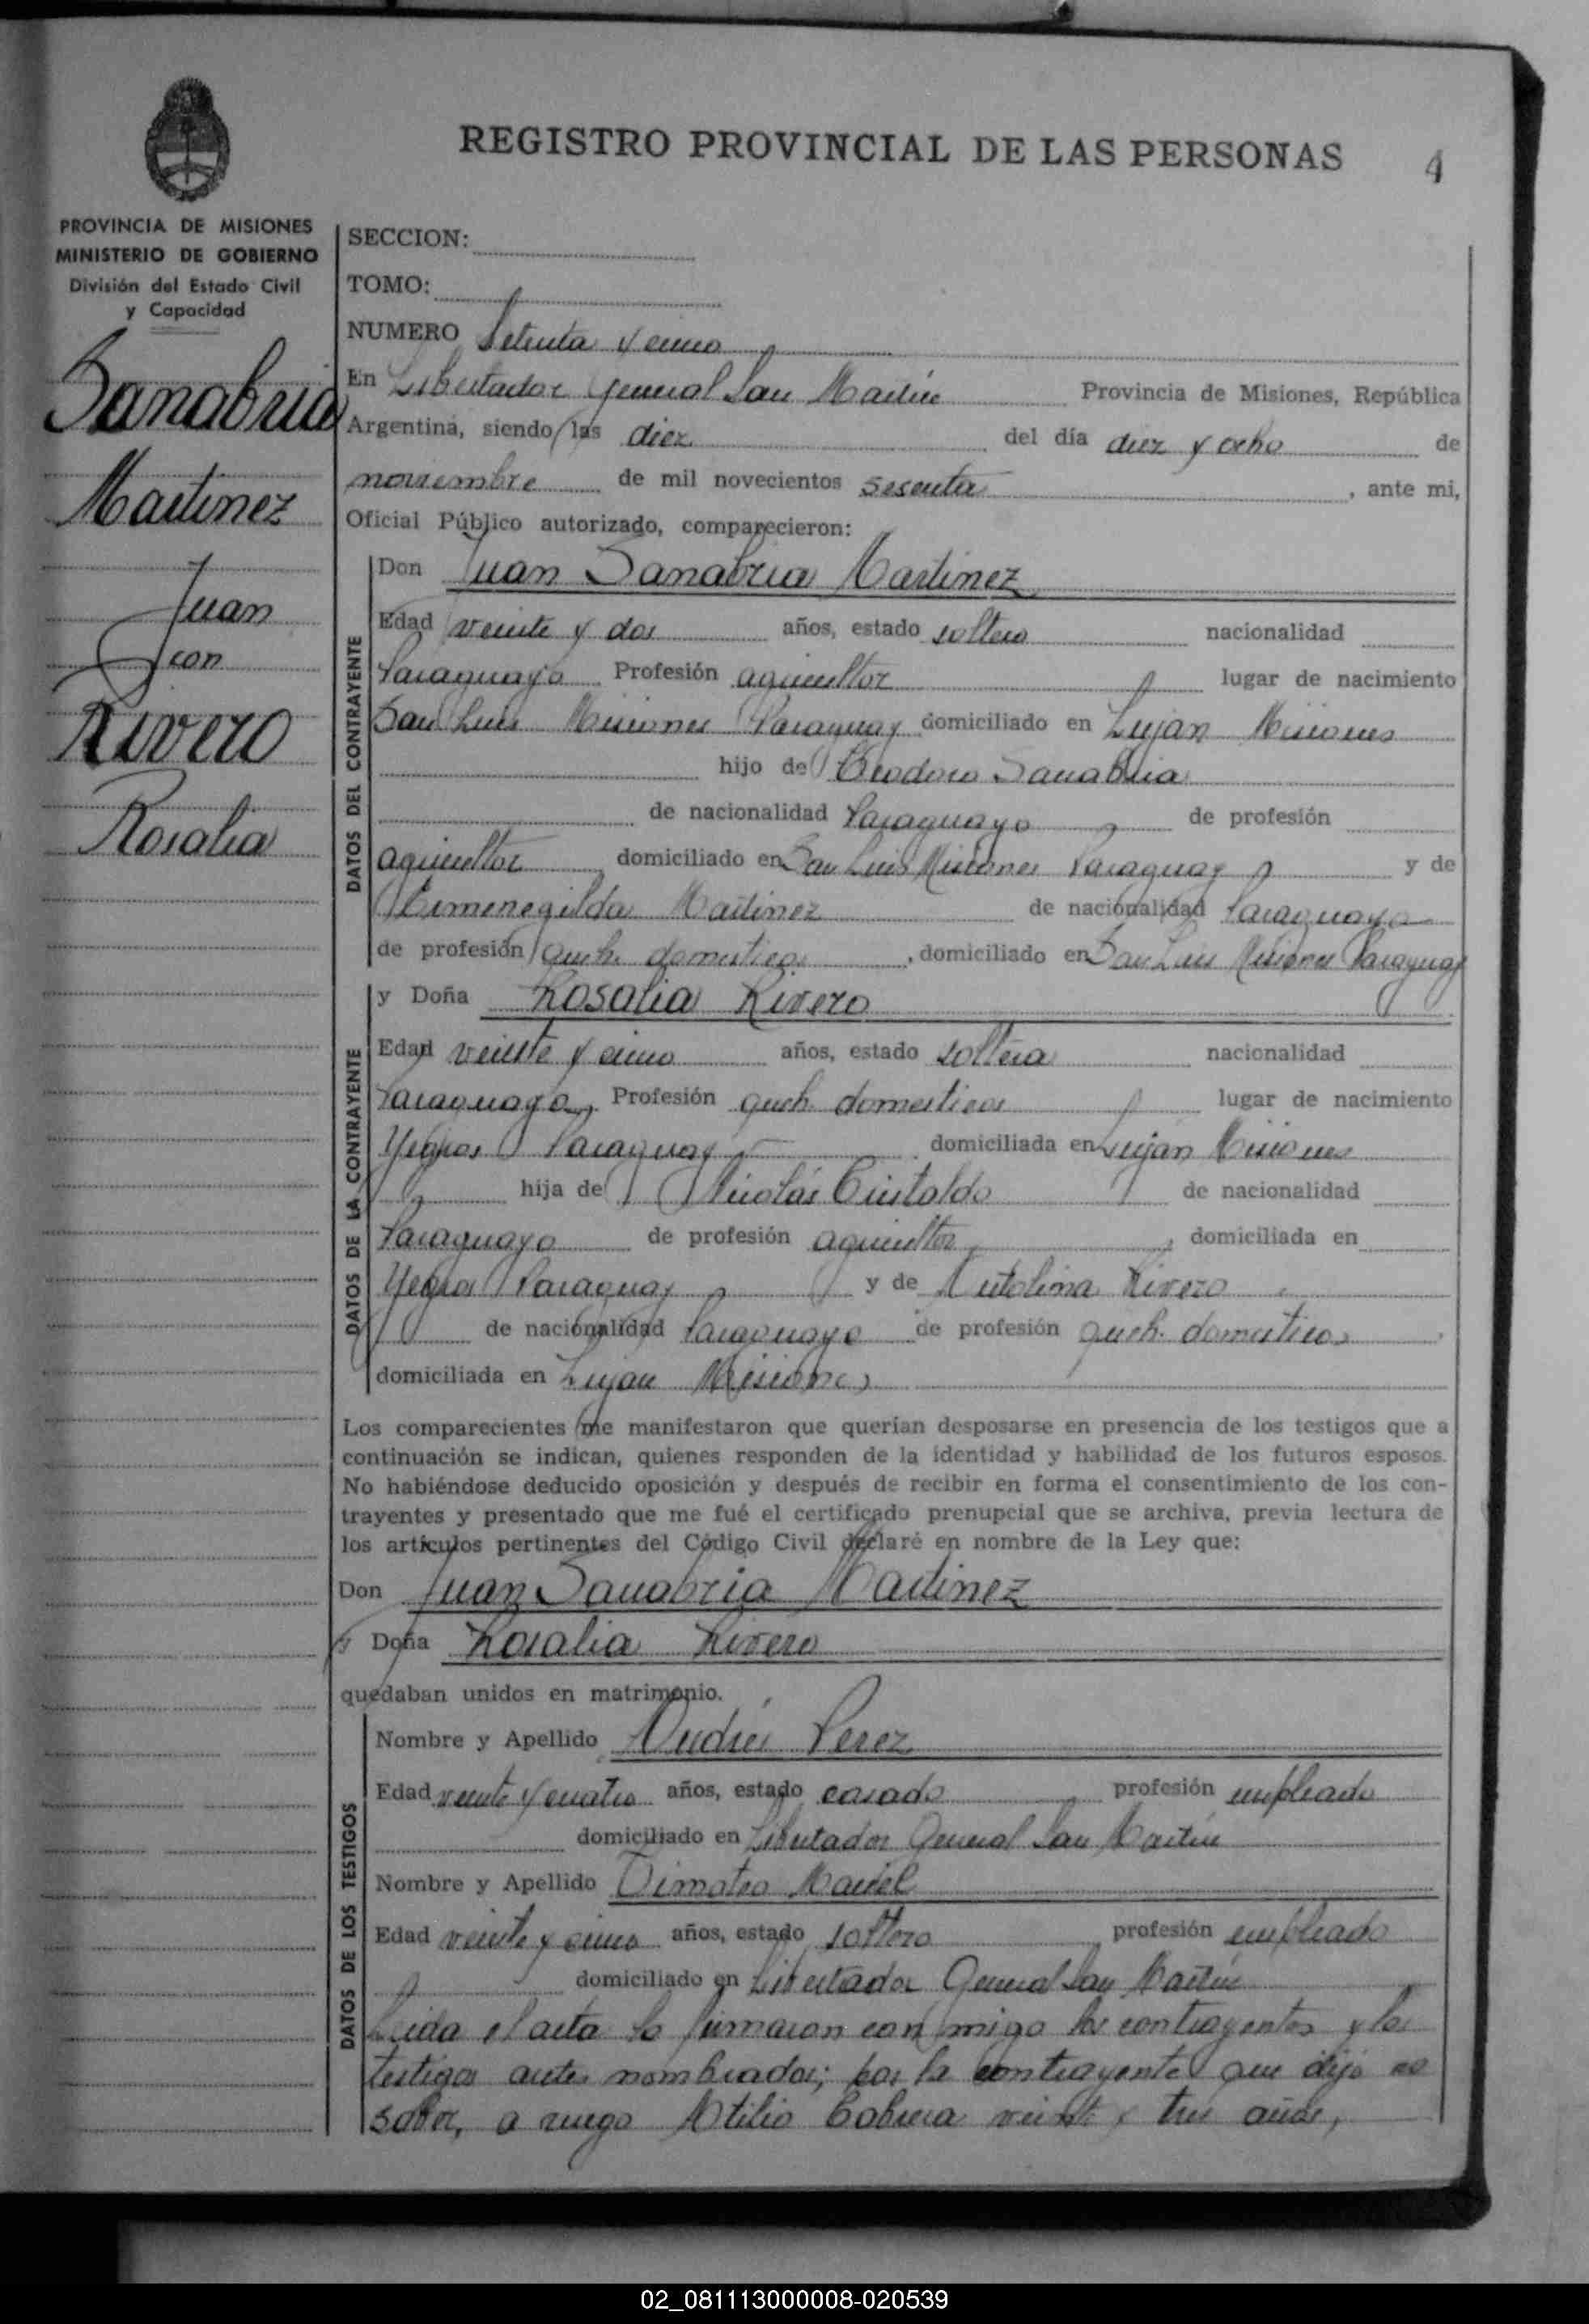 REGISTRO PROVINCIAL DE LAS PERSONAS
4
PROVINCIA DE MISIONES
MINISTERIO DE GOBIERNO
División del Estado Civil
y Capacidad
Sanabria
Martinez
Juan
con
Rivero
Rosalia
SECCION:
TOMO:
NUMERO Setenta y cinco
En Libertador General San Martín Provincia de Misiones, República
Argentina, siendo las diez del día diez y ocho de
noviembre de mil novecientos sesenta, ante mi,
Oficial Público autorizado, comparecieron:
DATOS DEL CONTRAYENTE
Don Juan Sanabria Martinez
Edad veinte y dos años, estado soltero nacionalidad
Paraguayo Profesión agricultor lugar de nacimiento
San Luis Misiones Paraguay domiciliado en Lujan Misiones
hijo de Teodoro Sanabria
de nacionalidad Paraguayo de profesión
agricultor domiciliado en San Luis Misiones Paraguay y de
Ermenegilda Martinez de nacionalidad Paraguaya
de profesión queh. domesticos, domiciliado en San Luis Misiones Paraguay
DATOS DE LA CONTRAYENTE
y Doña Rosalia Rivero
Edad veinte y cinco años, estado soltera nacionalidad
Paraguaya Profesión queh. domesticos lugar de nacimiento
Yegros Paraguay domiciliada en Luján Misiones
hija de Nicolás Cristaldo de nacionalidad
Paraguayo de profesión agricultor, domiciliada en
Yegros Paraguay y de Rivero
de nacionalidad Paraguaya de profesión queh. domesticos
domiciliada en Lujan Misiones
Los comparecientes me manifestaron que querían desposarse en presencia de los testigos que a
continuación se indican, quienes responden de la identidad y habilidad de los futuros esposos.
No habiéndose deducido oposición y después de recibir en forma el consentimiento de los con-
trayentes y presentado que me fué el certificado prenupcial que se archiva, previa lectura de
los artículos pertinentes del Código Civil declaré en nombre de la Ley que:
Don Juan Sanabria Martinez
y Doña Rosalia Rivero
quedaban unidos en matrimonio.
DATOS DE LOS TESTIGOS
Nombre y Apellido Andrés Perez
Edad veinte y cuatro años, estado casado profesión empleado
domiciliado en Libertador General San Martín
Nombre y Apellido Timoteo Maciel
Edad veinte y cinco años, estado soltero profesión empleado
domiciliado en Libertador General San Martín
Leida el acta la firmaron con migo los contrayentes y los
testigos antes nombrados; por la contrayente que dijo no
saber, a ruego Atilio Cabrera veinte y tres años,
02_081113000008-020539